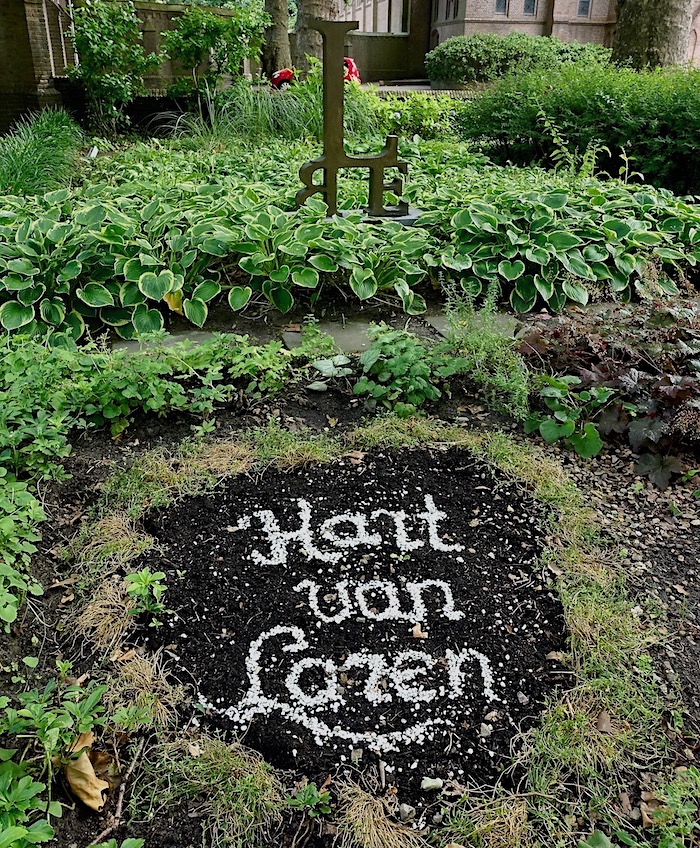 Hart
van
Laren